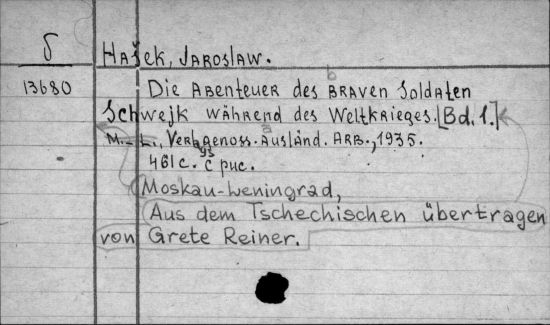 δ
Hašek, Jaroslaw.
13680
Die Abenteuer des braven Soldaten
Schwejk während des Weltkrieges. [Bd. 1.]
M.-L., Verlagenoss. Ausländ. Arb., 1935.
461 c. с рис.
Moskau-Leningrad,
Aus dem Tschechischen übertragen
von Grete Reiner.